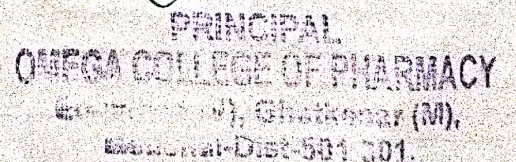 PRINCIPAL
OMEGA COLLEGE OF PHARMACY
(M), Ghatkesar (M),
-Dist-501 301.